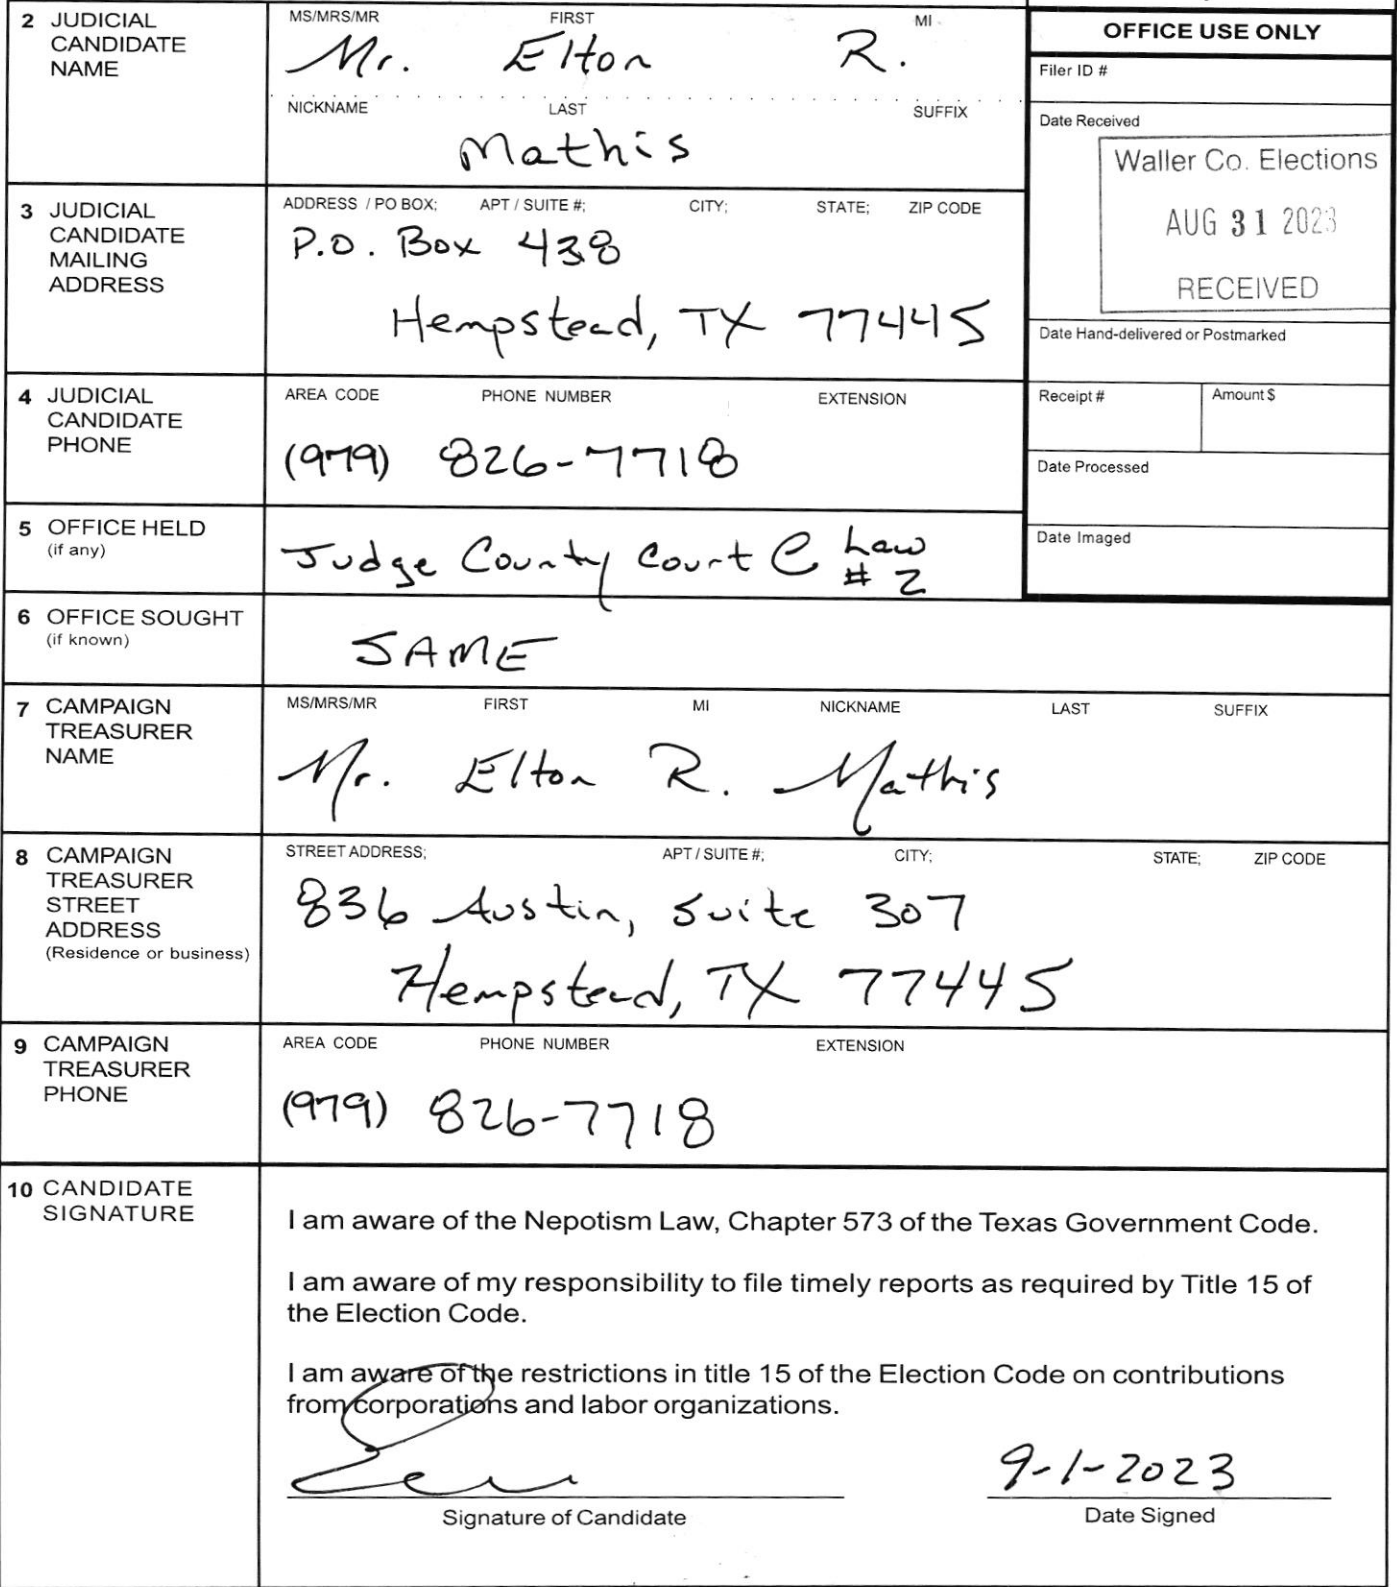 2 JUDICIAL CANDIDATE NAME
MS/MRS/MR FIRST MI
Mr. Elton R.
NICKNAME LAST SUFFIX
Mathis
OFFICE USE ONLY
Filer ID #
Date Received
Waller Co. Elections
AUG 31 2023
RECEIVED
Date Hand-delivered or Postmarked
Receipt # Amount $
Date Processed
Date Imaged
3 JUDICIAL CANDIDATE MAILING ADDRESS
ADDRESS / PO BOX; APT / SUITE #; CITY; STATE; ZIP CODE
P.O. Box 438
Hempstead, TX 77445
4 JUDICIAL CANDIDATE PHONE
AREA CODE PHONE NUMBER EXTENSION
(979) 826-7718
5 OFFICE HELD
(if any)
Judge County Court @ Law
# 2
6 OFFICE SOUGHT
(if known)
SAME
7 CAMPAIGN TREASURER NAME
MS/MRS/MR FIRST MI NICKNAME LAST SUFFIX
Mr. Elton R. Mathis
8 CAMPAIGN TREASURER STREET ADDRESS
(Residence or business)
STREET ADDRESS; APT / SUITE #; CITY; STATE; ZIP CODE
836 Austin, Suite 307
Hempstead, TX 77445
9 CAMPAIGN TREASURER PHONE
AREA CODE PHONE NUMBER EXTENSION
(979) 826-7718
10 CANDIDATE SIGNATURE
I am aware of the Nepotism Law, Chapter 573 of the Texas Government Code.
I am aware of my responsibility to file timely reports as required by Title 15 of
the Election Code.
I am aware of the restrictions in title 15 of the Election Code on contributions
from corporations and labor organizations.
9-1-2023
Signature of Candidate Date Signed